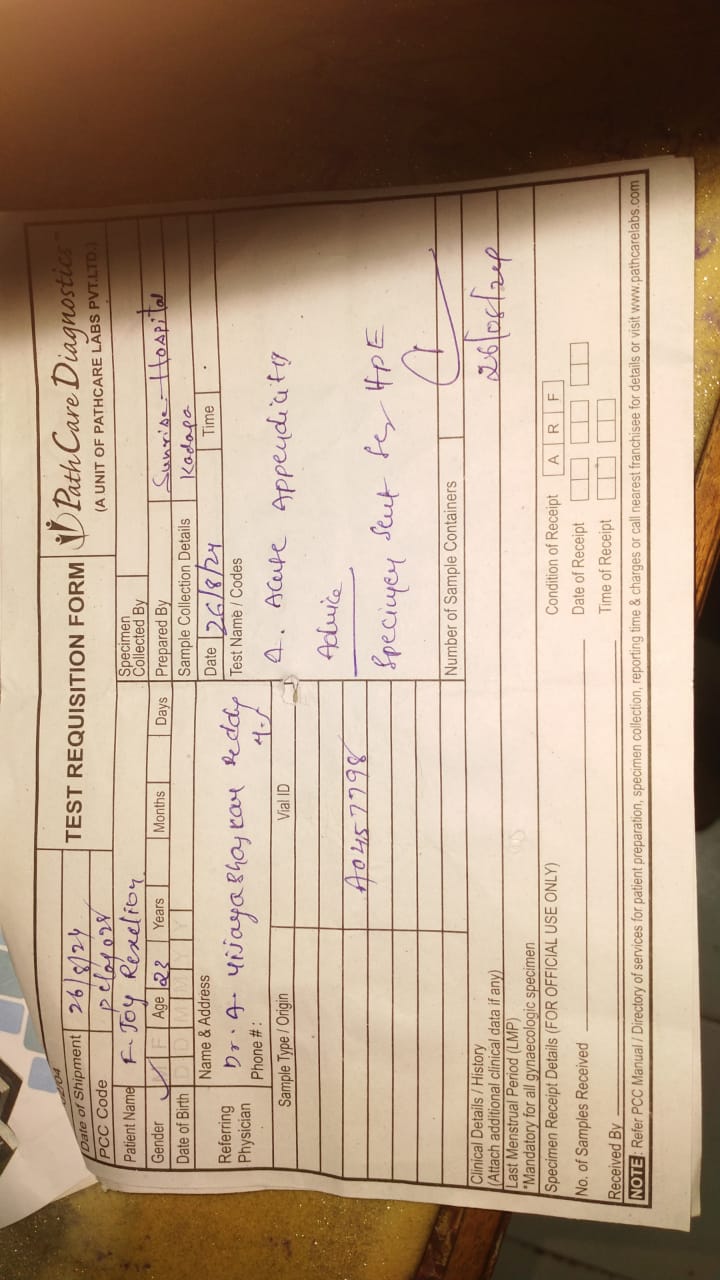 TEST REQUISITION FORM
PathCare Diagnostics™
(A UNIT OF PATHCARE LABS PVT.LTD.)
Date of Shipment 26/8/24
PCC Code
Patient Name F. Joy Rexelion
Specimen Collected By
Gender M F Age 23 Years Months Days
Prepared By Sunrise Hospital
Date of Birth D D M M Y Y
Sample Collection Details Kadapa
Date 26/8/24 Time
Referring Physician
Name & Address
Dr. A. Vijayabhaskar Reddy
Phone #:
Test Name / Codes
Sample Type / Origin Vial ID
A0457798
Δ. Acute Appendicitis
Advice
Specimen sent for HPE
Number of Sample Containers
26/08/24
Clinical Details / History
(Attach additional clinical data if any)
Last Menstrual Period (LMP)
*Mandatory for all gynaecologic specimen
Specimen Receipt Details (FOR OFFICIAL USE ONLY)
Condition of Receipt A R F
No. of Samples Received
Date of Receipt
Received By
Time of Receipt
NOTE: Refer PCC Manual / Directory of services for patient preparation, specimen collection, reporting time & charges or call nearest franchisee for details or visit www.pathcarelabs.com